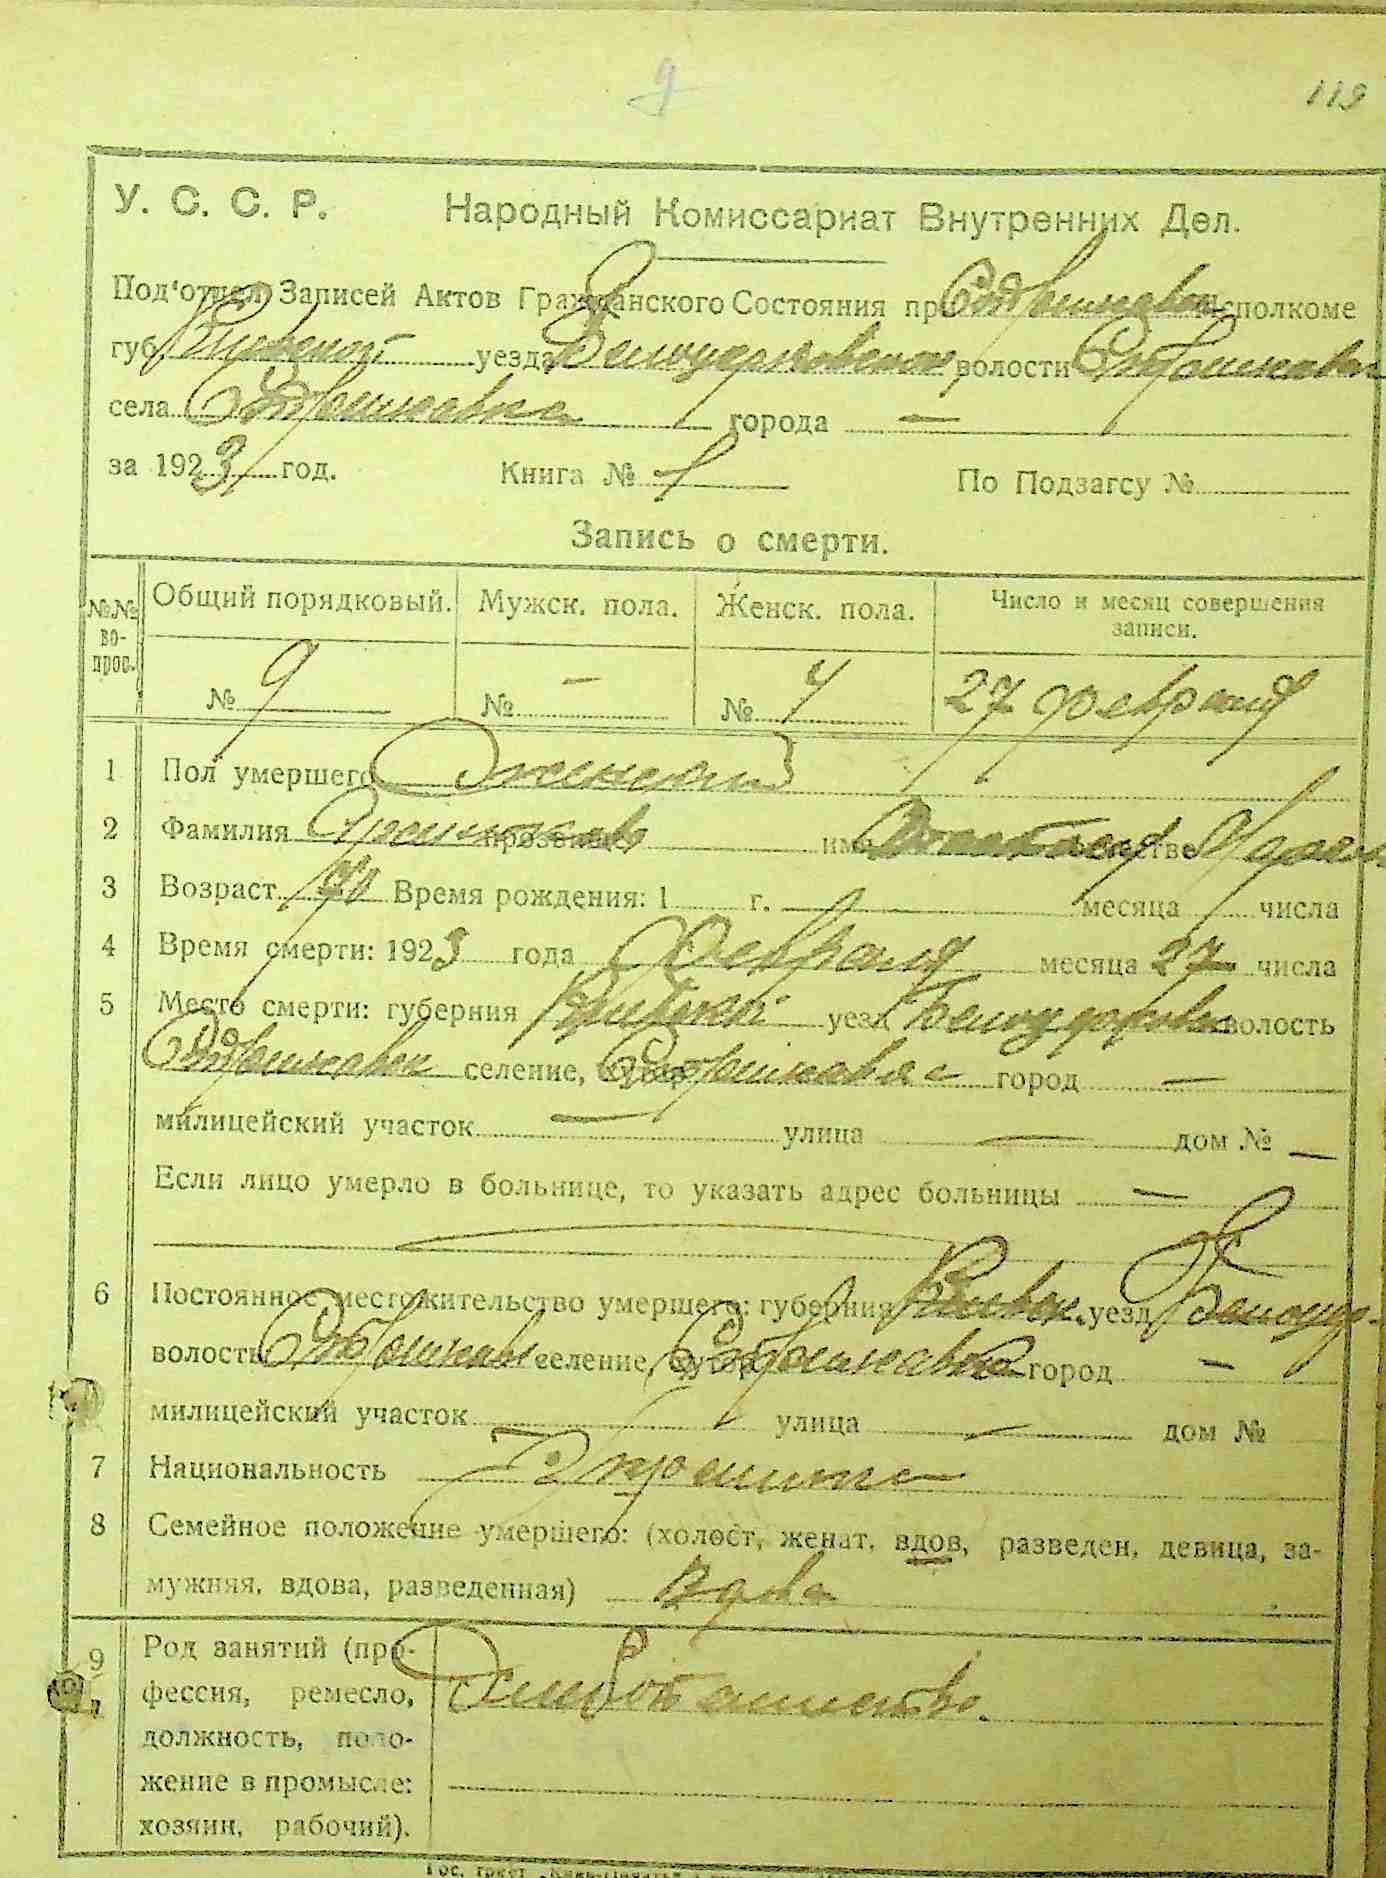 9
119
У. С. С. Р. Народный Комиссариат Внутренних Дел.
Под'отдел Записей Актов Гражданского Состояния при исполкоме
губ. Киевской уезда Белоцерковского волости
села города —
за 1923 год. Книга № 1 По Подзагсу №
Запись о смерти.
№№ вопрос. Общий порядковый. Мужск. пола. Женск. пола. Число и месяц совершения записи.
№ 9 № — № 4 27 февраля
1 Пол умершего Женский
2 Фамилия прозвище имя отчество
3 Возраст 70 Время рождения: 1 г. — месяца числа
4 Время смерти: 1923 года Февраля месяца 27 числа
5 Место смерти: губерния уезд волость
селение, хутор город —
милицейский участок — улица — дом № —
Если лицо умерло в больнице, то указать адрес больницы —
6 Постоянное местожительство умершего: губерния Киевск. уезд Белоцер-
волость селение, хутор город —
милицейский участок улица — дом №
7 Национальность Украинка
8 Семейное положение умершего: (холост, женат, вдов, разведен, девица, за-
мужняя, вдова, разведенная) Вдова
9 Род занятий (про-
фессия, ремесло, Хлебопашество.
должность, поло-
жение в промысле:
хозяин, рабочий).